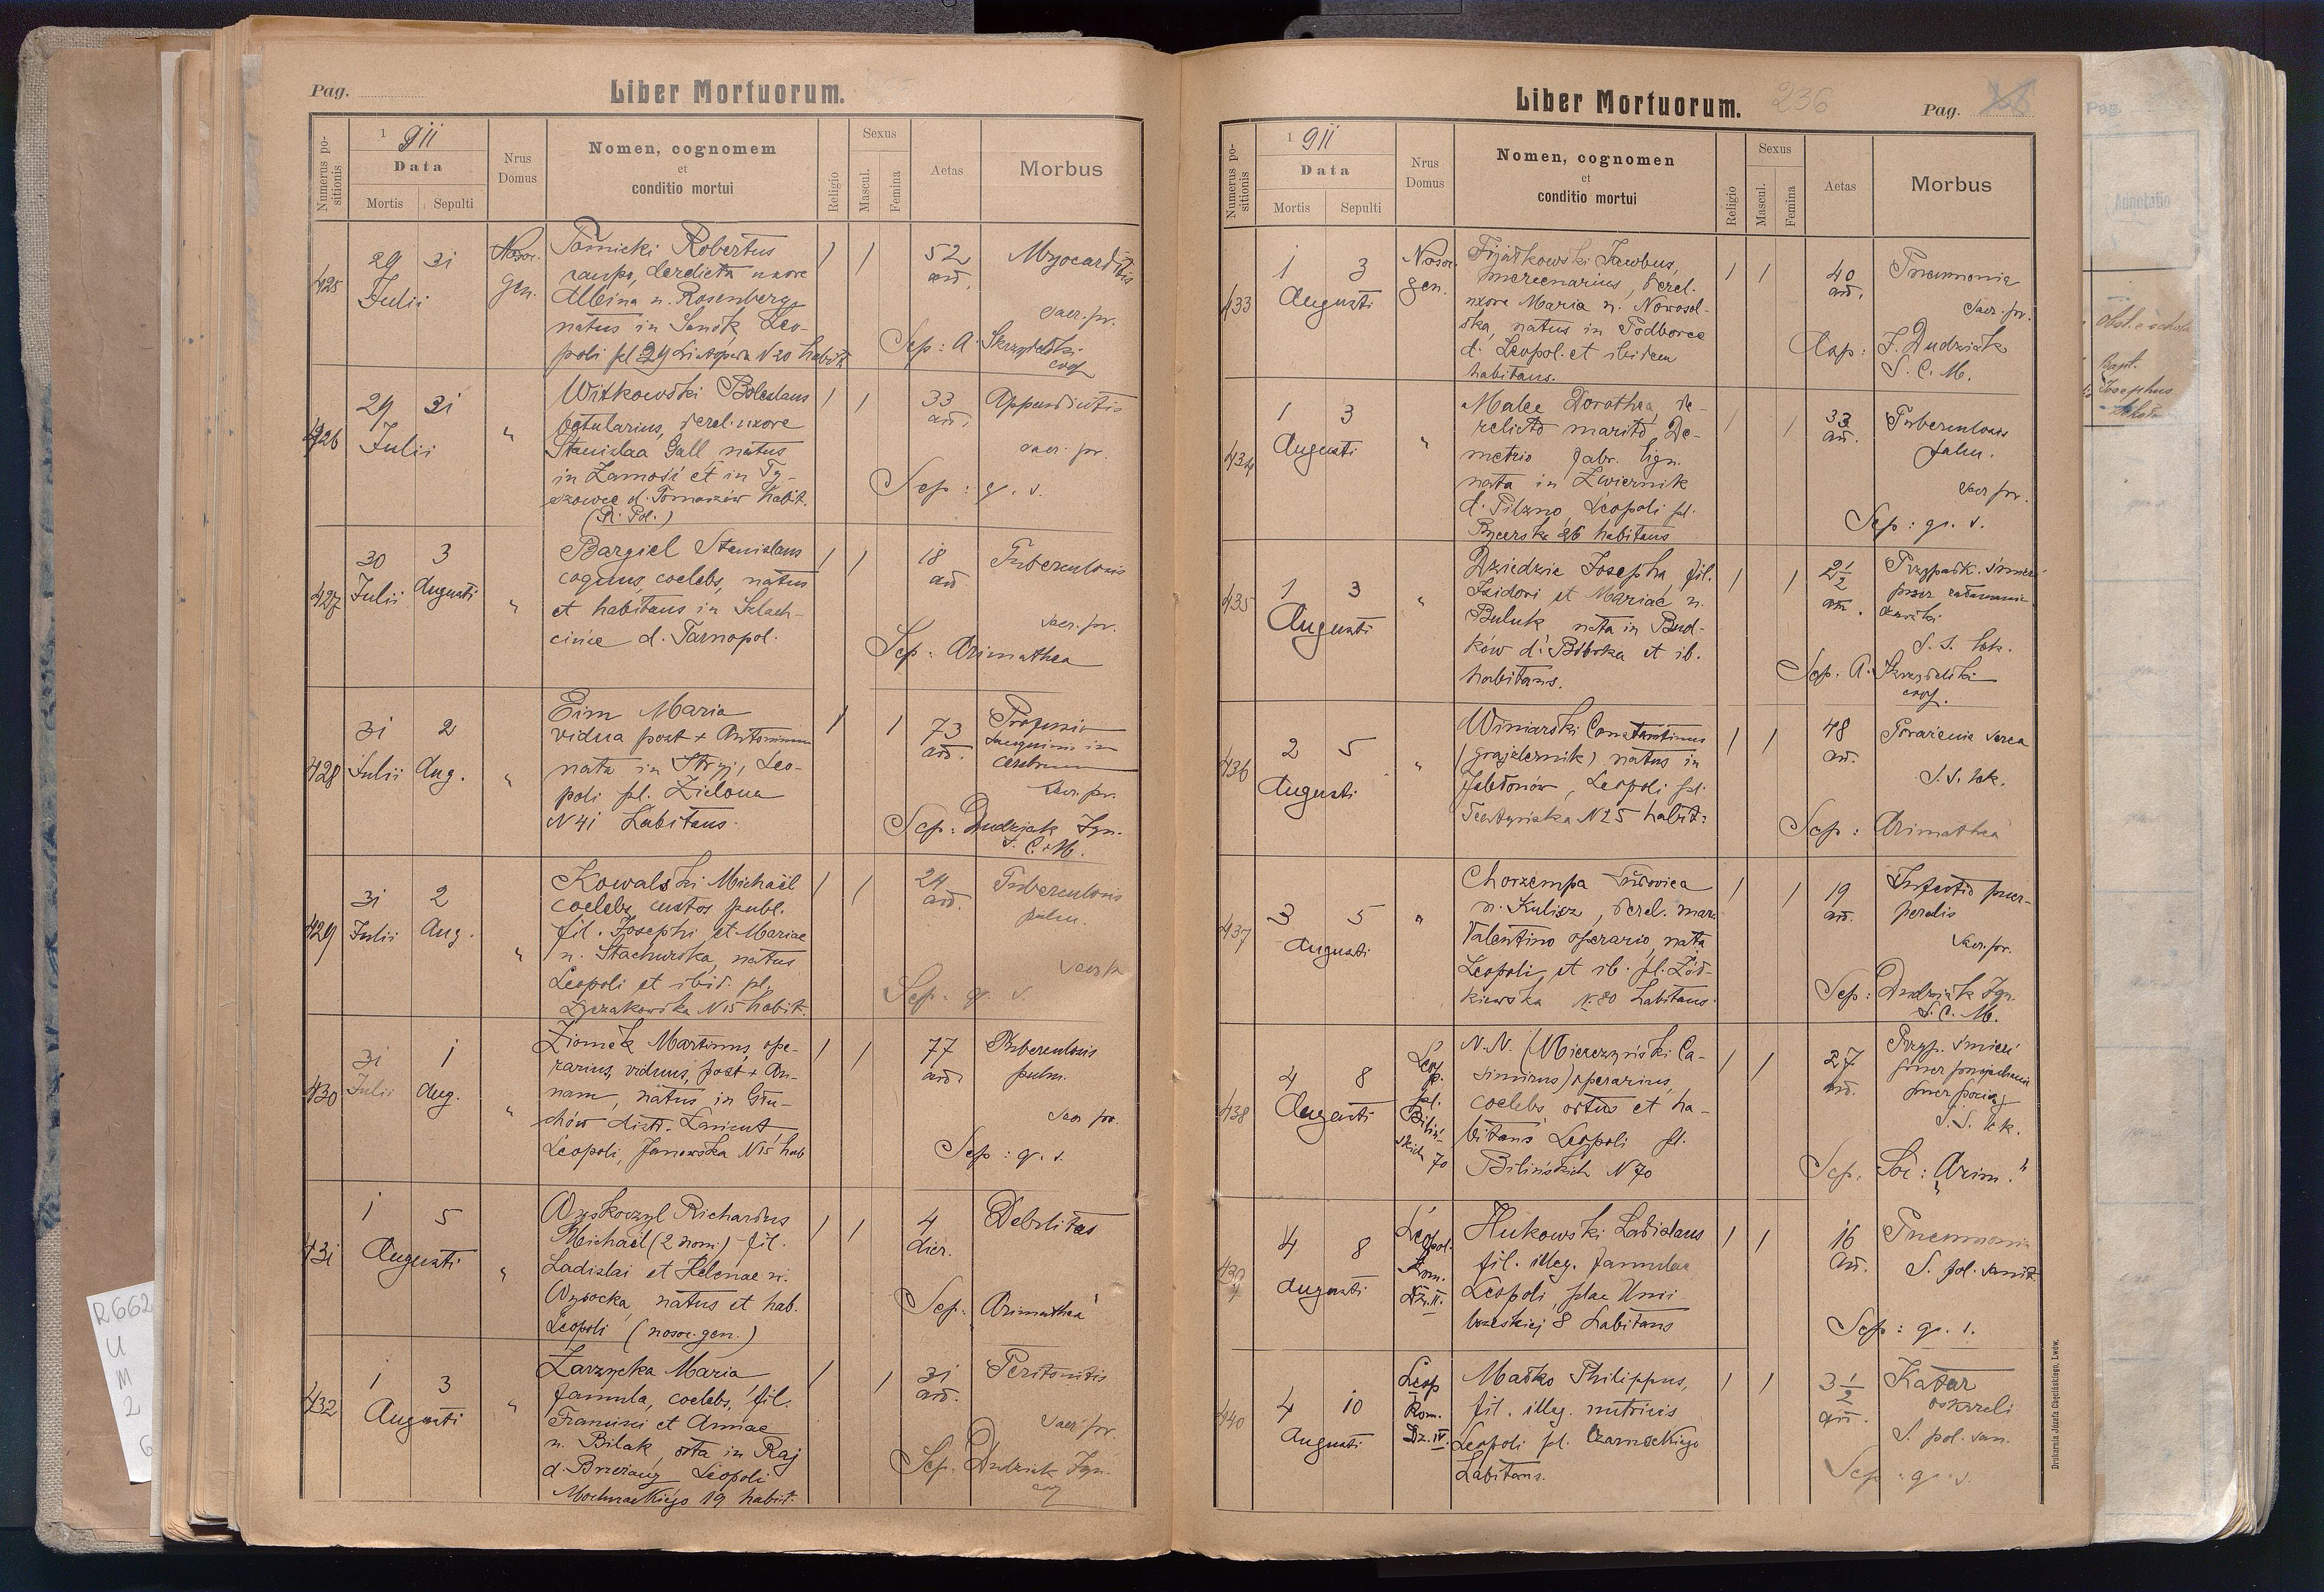 Pag.
Liber Mortuorum.
Numerus positionis
1 911
Data
Mortis Sepulti
Nrus Domus
Nomen, cognomem
et
conditio mortui
Religio
Sexus
Mascul. Femina
Aetas
Morbus
425
29 31
Julii
Nosoc. gen.
Tarnicki Robertus
caupo, derelicta uxore
Albina n. Rosenberg,
natus in Sanok, Leo-
poli pl 29 Listopada N 20 habita
52
an.
Myocarditis
sacr. pr.
Sep: A. Skrzydelski
426
29 31
Julii
"
Witkowski Boleslaus
derel. uxore
Stanislaa Gall natus
in Zamość et in Ty-
szowce d. Tomaszów habit.
(R. Pol.)
33
an.
Appendicitis
sacr. pr.
Sep: q. s.
427
30 3
Julii Augusti
"
Bargiel Stanislaus
coquus, coelebs, natus
et habitans in Szlach-
cińce d. Tarnopol.
18
an.
Tuberculosis
sacr. pr.
Sep: Arimathea
428
31 2
Julii Aug.
"
Eim Maria
vidua post + Antonium
nata in Stryj, Leo-
poli pl. Zielona
N 41 habitans.
73
an.
sanguinis in
cerebrum
sacr. pr.
Sep: Dudziak Ign.
S. C. M.
429
31 2
Julii Aug.
"
Kowalski Michaël
coelebs, custos publ.
fil. Josephi et Mariae
n. Stachurska, natus
Leopoli et ibid. pl.
Łyczakowska N 15 habit.
24
an.
Tuberculosis
pulm.
Sep. q. s.
430
31 1
Julii Aug.
"
Ziomek Martinus, ope-
rarius, viduus, post + An-
nam, natus in Głu-
chów distr. Łańcut
Leopoli, Janowska N 15 hab
77
an.
Tuberculosis
pulm.
sacr. pr.
Sep: q. s.
431
1 5
Augusti
"
Wyskoczyl Richardus
Michaël (2 nom.) fil.
Ladislai et Helenae n.
Wysocka, natus et hab.
Leopoli (nosoc. gen.)
4
dier.
Debilitas
Sep. Arimathea
432
1 3
Augusti
"
Zarzycka Maria
famula, coelebs, fil.
Francisci et Annae
n. Bilak, orta in Raj
d. Brzeżany Leopoli
Mochnackiego 19 habit.
31
an.
Peritonitis
sacr. pr.
Sep. Dudziak Ign.
Liber Mortuorum. 236
Pag.
Numerus positionis
1 911
Data
Mortis Sepulti
Nrus Domus
Nomen, cognomen
et
conditio mortui
Religio
Sexus
Mascul. Femina
Aetas
Morbus
433
1 3
Augusti
Nosoc. gen.
Fijałkowski Jacobus,
mercenarius, derel.
uxore Maria n. Nowosel-
ska, natus in Podborce
d. Leopol. et ibidem
habitans.
40
an.
Pneumonia
sacr. pr.
J. Dudziak
S. C. M.
434
1 3
Augusti
"
Malec Dorothea, de-
relicto marito De-
metrio fabr. lign.
nata in Zwiernik
d. Pilzno, Leopoli pl.
Rycerska 26 habitans
33
an.
Tuberculosis
pulm.
sacr. pr.
Sep: q. s.
435
1 3
Augusti
"
Dziedzic Josepha, fil.
Isidori et Mariae n.
Buluk nata in Bud-
ków d. Bóbrka et ib.
habitans.
2 1/2
an.
Przypadk. śmierć
przez
S. S. lek.
Sep. A. Skrzydelski
436
2 5
Augusti
"
Winiarski Constantinus
(grajzlernik) natus in
Jabłonów, Leopoli pl.
N 25 habit.
48
an.
Porażenie serca
S. S. lek.
Sep: Arimathea
437
3 5
Augusti
"
Chorzempa Ludovica
n. Kulisz, derel. mar.
Valentino operario, nata
Leopoli et ib. pl. Żół-
kiewska N 80 habitans.
19
an.
Infectio puer-
peralis
sacr. pr.
Sep: Dudziak Ign.
S. C. M.
438
4 8
Augusti
Leop.
pl.
Biliń-
skich
70
N. N. (Mierzyński Ca-
simirus) operarius,
coelebs, ortus et ha-
bitans Leopoli pl.
Bilińskich N 70
27
an.
Przyp. śmierć
przez przejechanie
przez pociąg
S. S. lek.
Sep. Soc: "Arim."
439
4 8
Augusti
Leopol.
Kom.
Dz. II.
Hukowski Ladislaus
fil. illeg. famulae
Leopoli, plac Unii
brzeskiej 8 habitans
16
an.
Pneumonia
S. pol. sanit.
Sep: q. s.
440
4 10
Augusti
Leop
Kom.
Dz. IV.
Maśko Philippus,
fil. illeg. nutricis
Leopoli pl. Czarneckiego
habitans.
3 1/2
an.
Katar
oskrzeli
S. pol. san.
Sep: q. s.
Drukarnia Józefa Chęcińskiego, Lwów.
Pag.
Adnotatio
Bapt.
Josephus
R662
U
M
2